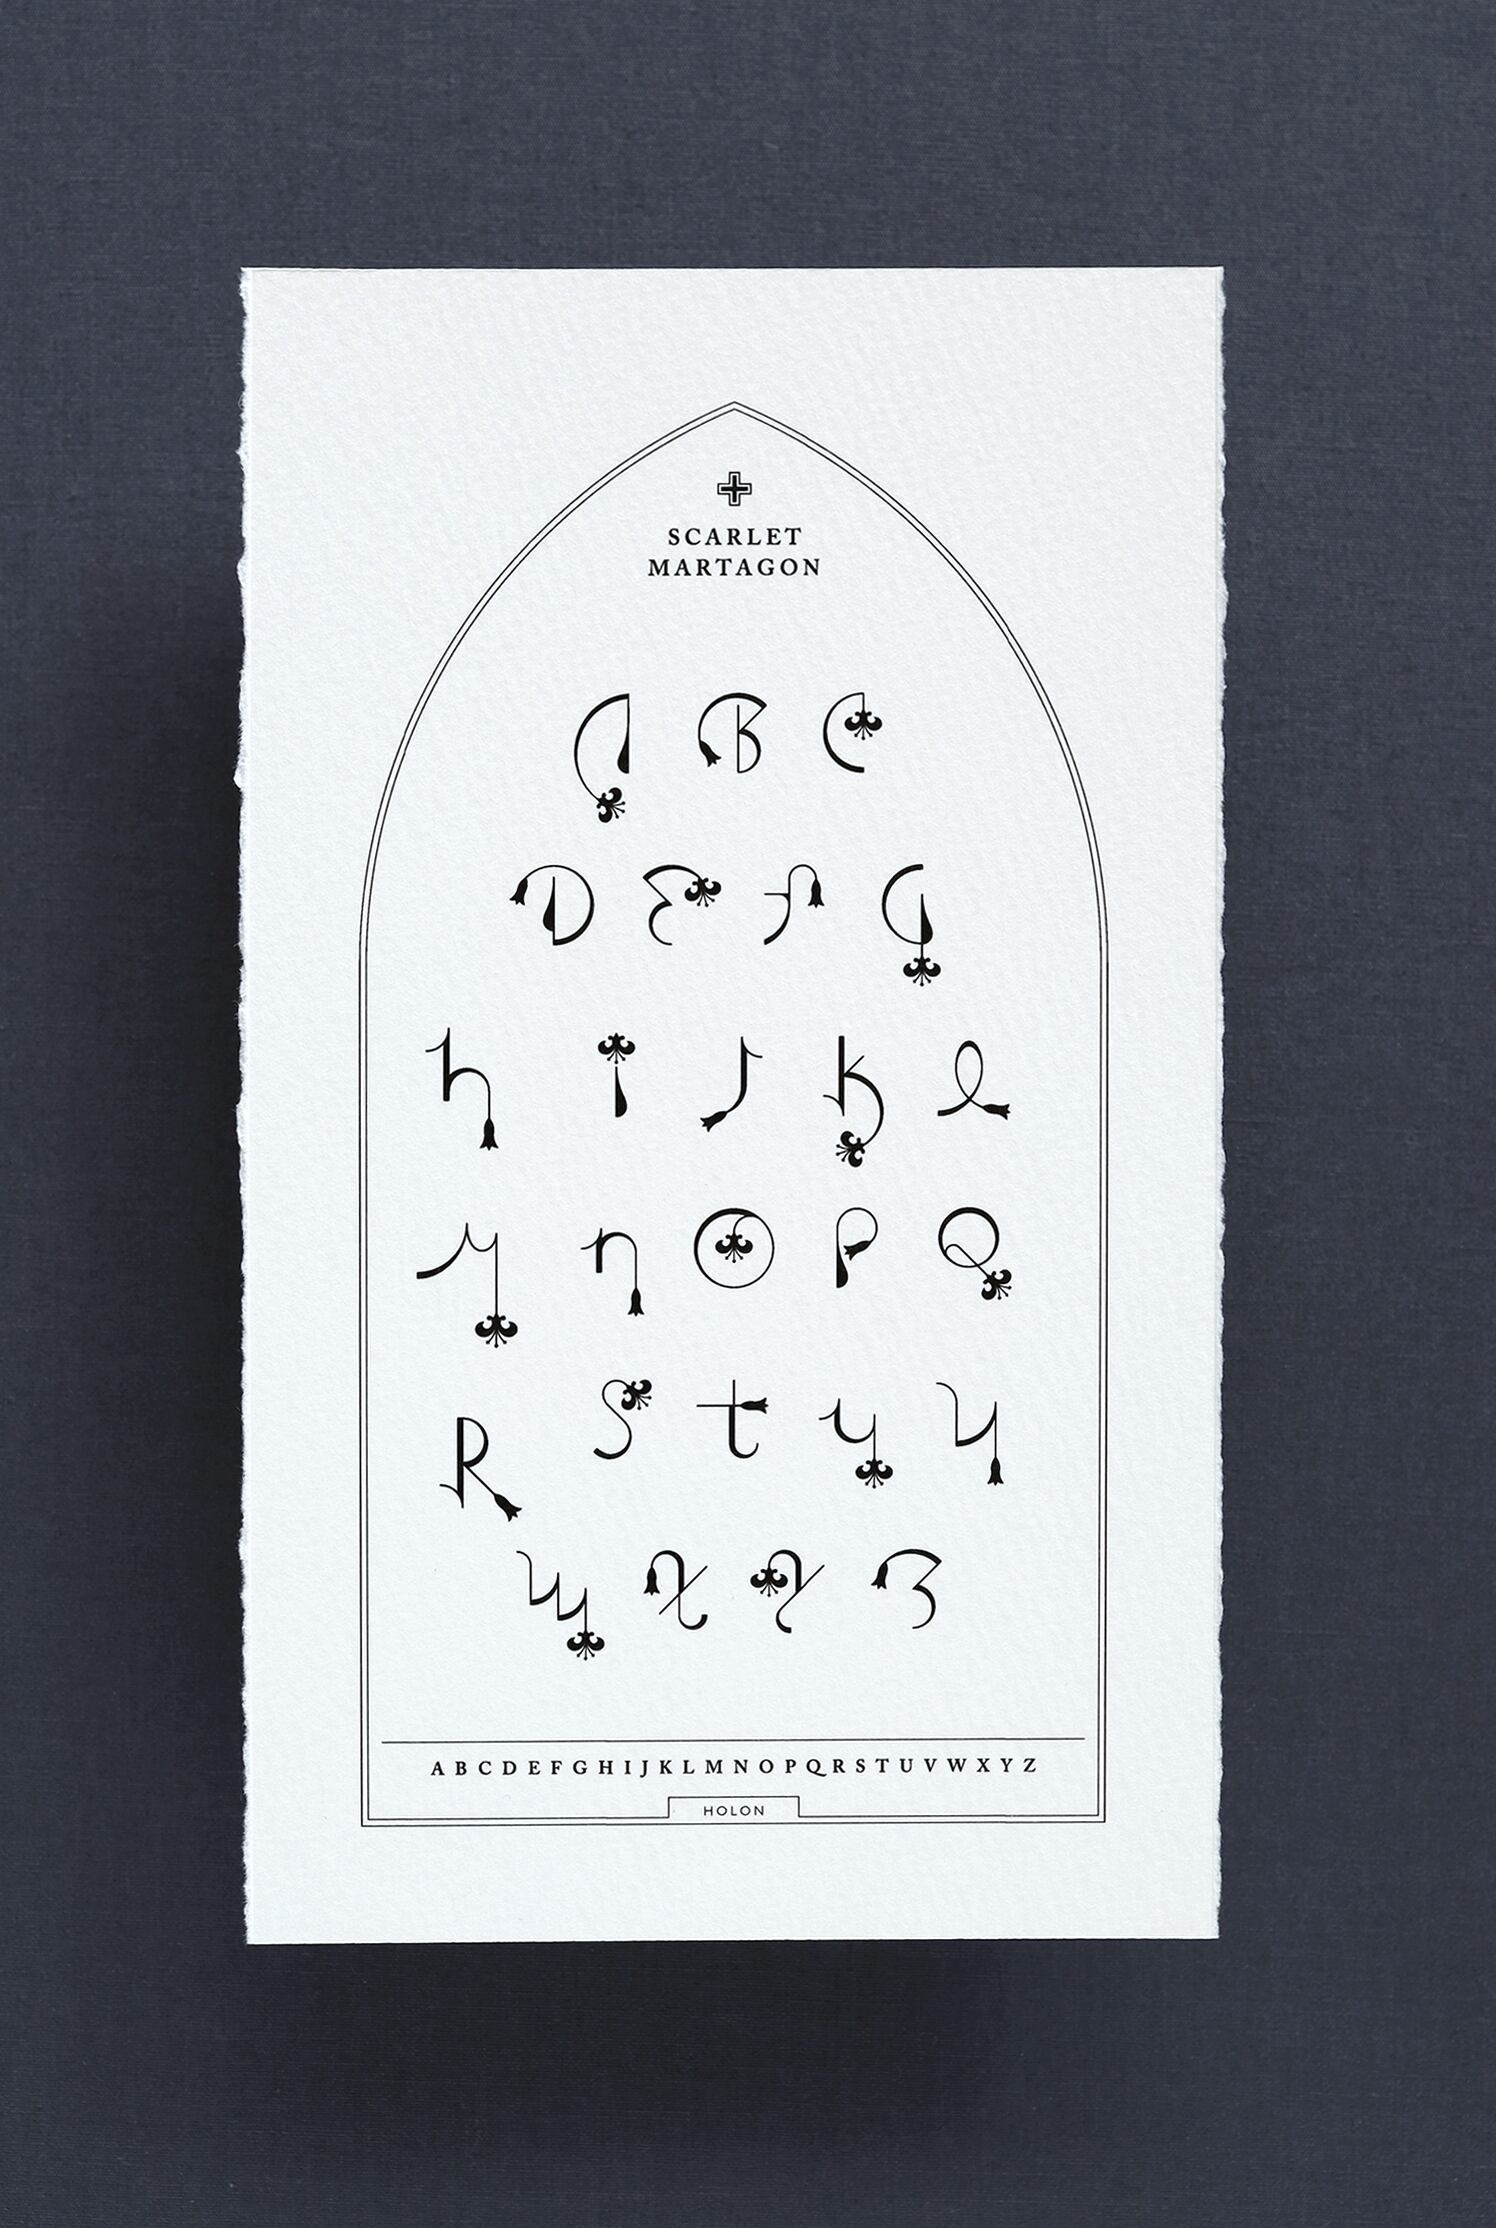 SCARLET
MARTAGON
A B C
D E F G
h i J k l
M n O P Q
R S t u V
W X Y Z
A B C D E F G H I J K L M N O P Q R S T U V W X Y Z
HOLON